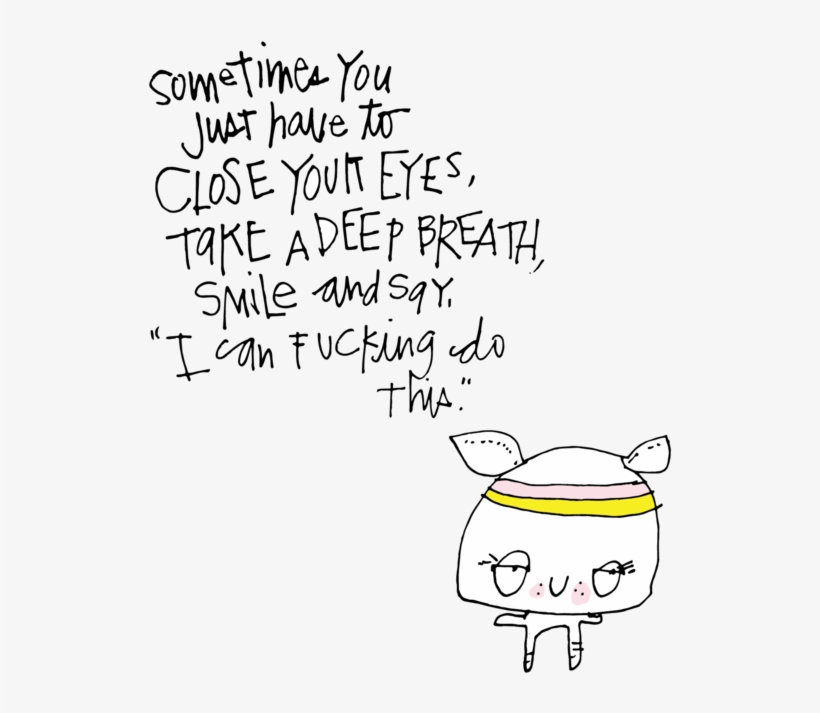 sometimes you
just have to
CLOSE YOUR EYES,
TAKE A DEEP BREATH,
SMiLe and say.
"I can FUCKing do
this."